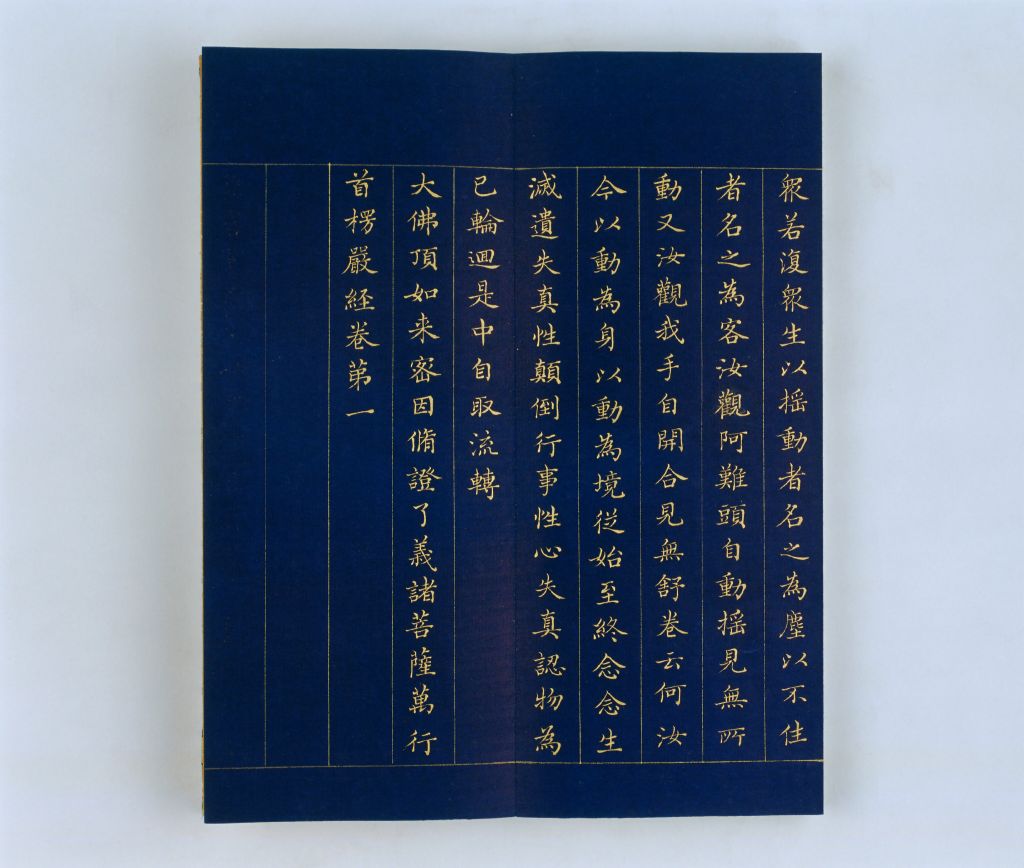 衆若復衆生以揺動者名之為塵以不住
者名之為客汝觀阿難頭自動揺見無所
動又汝觀我手自開合見無舒卷云何汝
今以動為身以動為境従始至終念念生
滅遺失真性顛倒行事性心失真認物為
己輪迴是中自取流轉
大佛頂如来密因脩證了義諸菩薩萬行
首楞嚴経卷第一